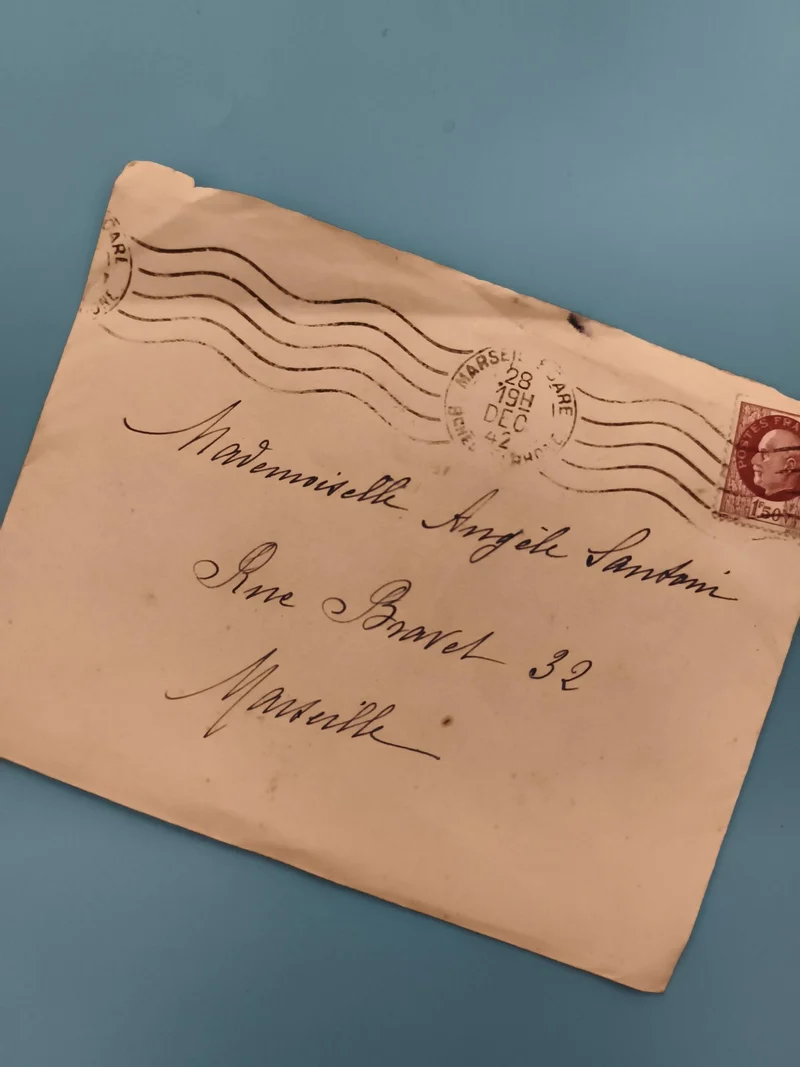 GARE
MARSEI GARE
28
19H
DEC
42
BCHES RHONE
POSTES FRA
1F50
Mademoiselle Angèle Santoni
Rue Bravet 32
Marseille